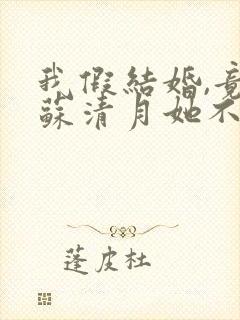 我假結婚,竟
蘇清月她不
蓬皮杜